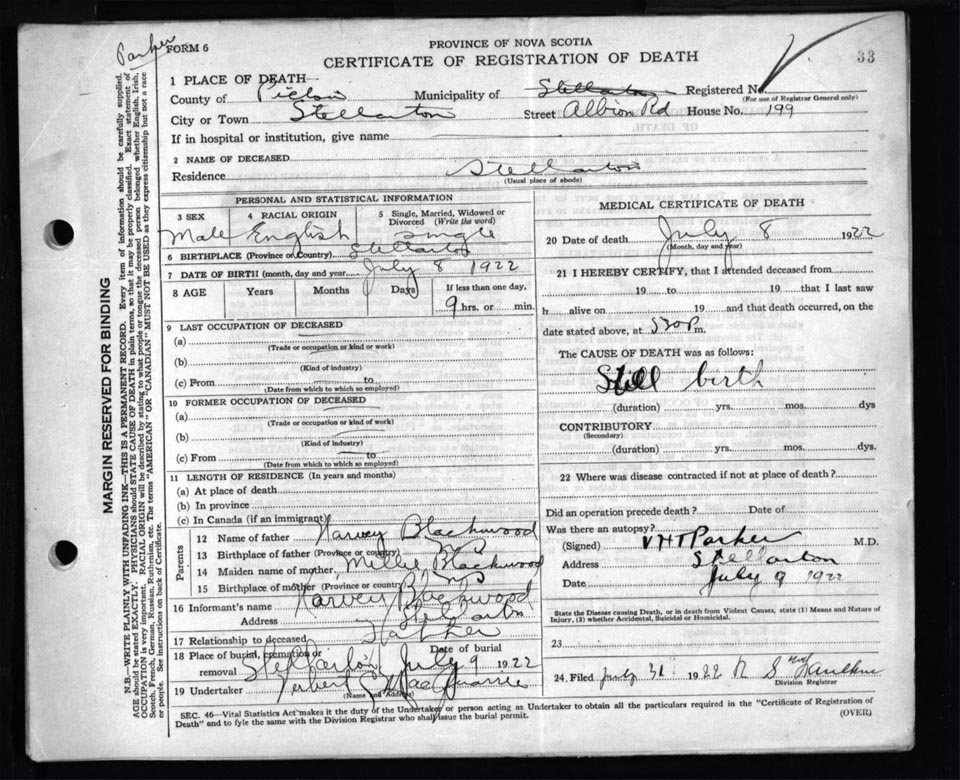 Parker
FORM 6
PROVINCE OF NOVA SCOTIA
CERTIFICATE OF REGISTRATION OF DEATH
33
1 PLACE OF DEATH
County of Pictou Municipality of Stellarton Registered No.
(For use of Registrar General only)
City or Town Stellarton Street Albion Rd House No. 199
If in hospital or institution, give name
2 NAME OF DECEASED
Residence Stellarton
(Usual place of abode)
PERSONAL AND STATISTICAL INFORMATION
3 SEX 4 RACIAL ORIGIN 5 Single, Married, Widowed or Divorced (Write the word)
Male English Single
6 BIRTHPLACE (Province or Country) Stellarton
7 DATE OF BIRTH (month, day and year) July 8 1922
8 AGE Years Months Days If less than one day,
9 hrs. or min.
9 LAST OCCUPATION OF DECEASED
(a)
(Trade or occupation or kind of work)
(b)
(Kind of industry)
(c) From to
(Date from which to which so employed)
10 FORMER OCCUPATION OF DECEASED
(a)
(Trade or occupation or kind of work)
(b)
(Kind of industry)
(c) From to
(Date from which to which so employed)
11 LENGTH OF RESIDENCE (In years and months)
(a) At place of death
(b) In province
(c) In Canada (if an immigrant)
Parents
12 Name of father Harvey Blackwood
13 Birthplace of father (Province or country)
14 Maiden name of mother Millie Blackwood
15 Birthplace of mother (Province or country) N S
16 Informant's name Harvey Blackwood
Address Stellarton
17 Relationship to deceased Father
18 Place of burial, cremation or removal Stellarton Date of burial July 9 1922
19 Undertaker
(Name and Address)
MEDICAL CERTIFICATE OF DEATH
20 Date of death July 8 1922
(Month, day and year)
21 I HEREBY CERTIFY, that I attended deceased from
19 to 19 that I last saw
h alive on 19 and that death occurred, on
date stated above, at 530P m.
The CAUSE OF DEATH was as follows:
Still birth
(duration) yrs. mos. dys
CONTRIBUTORY
(Secondary)
(duration) yrs. mos. dys.
22 Where was disease contracted if not at place of death?
Did an operation precede death? Date of
Was there an autopsy?
(Signed) V H T Parker M.D.
Address Stellarton
Date July 9 1922
State the Disease causing Death, or in death from Violent Causes, state (1) Means and Nature of
Injury, (2) whether Accidental, Suicidal or Homicidal.
23
24. Filed July 31 1922 R S
Division Registrar
SEC. 46—Vital Statistics Act makes it the duty of the Undertaker or person acting as Undertaker to obtain all the particulars required in the "Certificate of Registration of
Death" and to fyle the same with the Division Registrar who shall issue the burial permit.
(OVER)
MARGIN RESERVED FOR BINDING
N.B.—WRITE PLAINLY WITH UNFADING INK—THIS IS A PERMANENT RECORD. Every item of information should be carefully supplied.
AGE should be stated EXACTLY. PHYSICIANS should STATE CAUSE OF DEATH in plain terms, so that it may be properly classified. Exact statement of
OCCUPATION is very important. RACIAL ORIGIN will be described by stating to what people or tongue the deceased person belonged whether English, Irish,
Scotch, French, German, Russian, Ruthenian, etc. The terms "AMERICAN" OR "CANADIAN" MUST NOT BE USED as they express citizenship but not a race
or people. See instructions on back of Certificate.